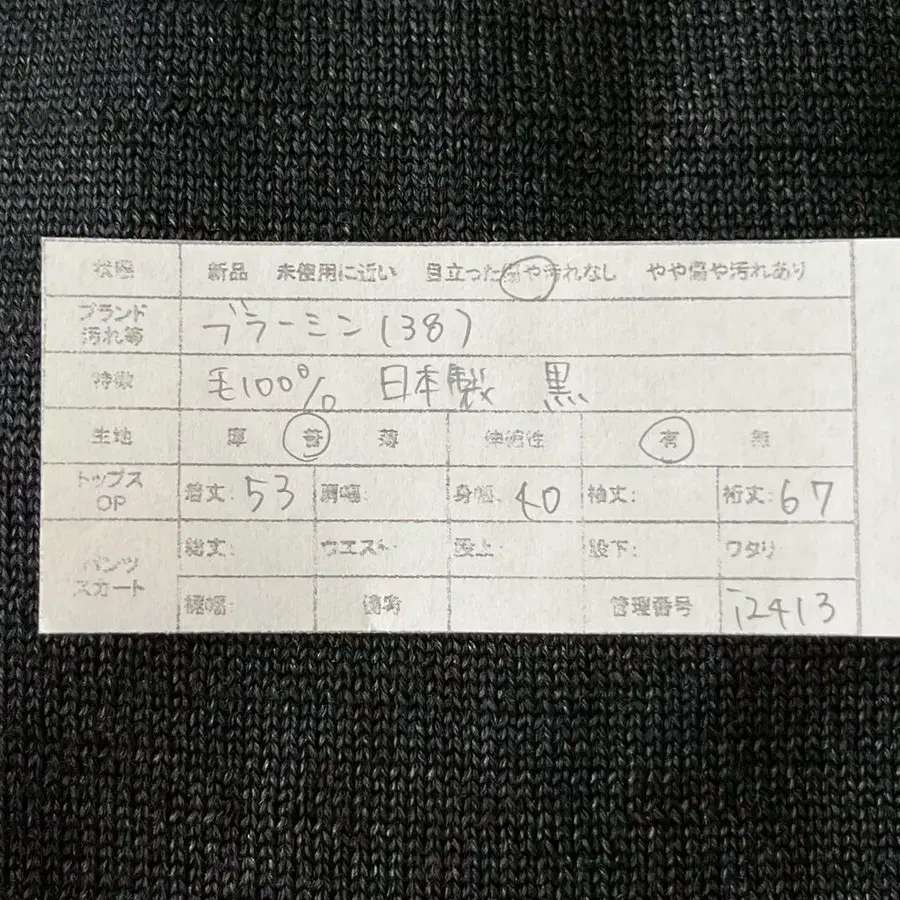 状態 新品 未使用に近い 目立った傷や汚れなし やや傷や汚れあり
ブランド
汚れ等 ブラーミン(38)
特徴 毛100% 日本製 黒
生地 厚 普 薄 伸縮性 有 無
トップス
OP 着丈: 53 肩幅: 身幅: 40 袖丈: 裄丈: 67
パンツ
スカート 総丈: ウエスト: 股上: 股下: ワタリ
裾幅: 備考 管理番号 i2413